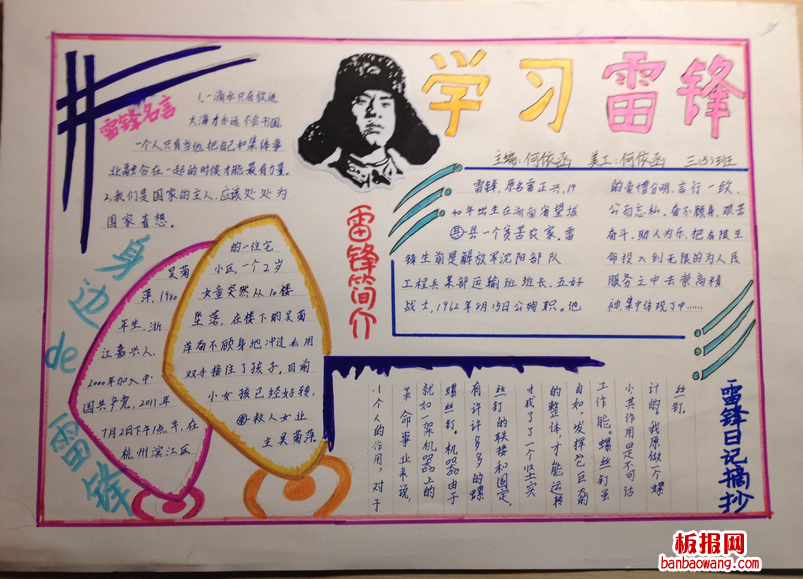 学习雷锋
主编：何依函 美工：何依函 三(5)班
雷锋名言
1、一滴水只有放进
大海才永远不会干涸，
一个人只有当他把自己和集体事
业融合在一起的时候才能最有力量。
2、我们是国家的主人，应该处处为
国家着想。
雷锋简介
雷锋，原名雷正兴，19
40年出生在湖南省望城
县一个贫苦农家，雷
锋生前是解放军沈阳部队
工程兵某部运输班班长、五好
战士，1962年8月15日公殉职。他
的爱憎分明、言行一致、
公而忘私、奋不顾身、艰苦
奋斗、助人为乐，把有限生
命投入到无限的为人民
服务之中去崇高精
神集中体现了中……
身边de雷锋
吴菊
萍，1980
年生，浙
江嘉兴人。
2000年加入中
国共产党，2011年
7月2日下午1点半，在
杭州滨江区
的一住宅
小区，一个2岁
女童突然从10楼
坠落，在楼下的吴菊
萍奋不顾身地冲过去用
双手接住了孩子，目前
小女孩已经好转，
救人女业
主吴菊萍。
雷锋日记摘抄
丝钉。
计的，我愿做一个螺
小其作用是不可估
工作能。螺丝钉虽
自如，发挥它巨大的
的整体，才能运转
才成了一个坚实
丝钉的联接和固定，
有许许多多的螺
螺丝钉。机器由于
就如一架机器上的
革命事业来说，
1、个人的作用，对于
板报网
banbaowang.com